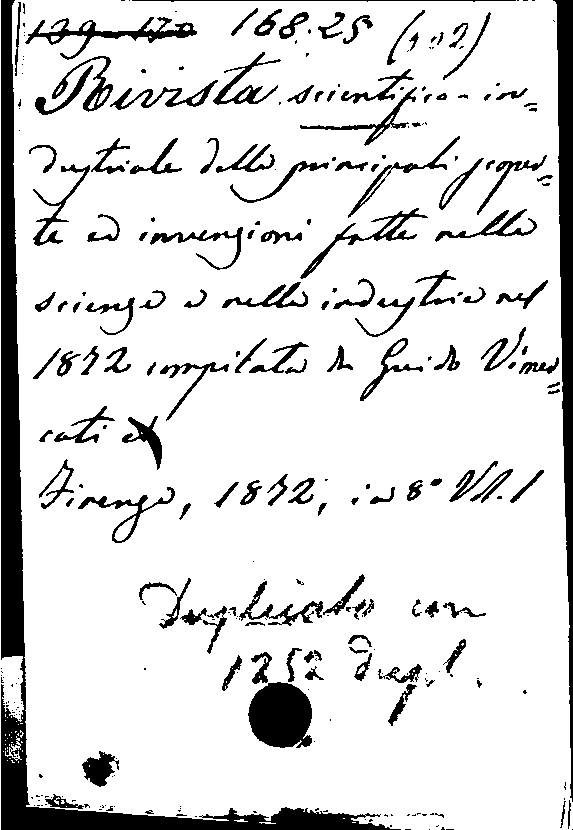 139-170 168.25 (102)
Rivista scientifico-in=
dustriale delle principali scoper=
te ed invenzioni fatte nelle
scienze e nelle industrie nel
1872 compilata da Guido Vimer=
cati ed
Firenze, 1872, in 8° Vol. 1
Duplicato con
1252 dupl.